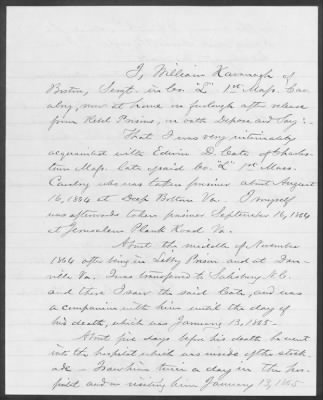 I, William Kavanagh of
Boston, Sergt. in Co. "L" 1st Mass. Cav-
alry, now at home on furlough after release
from Rebel Prisons, on oath Depose and Say:-
That I was very intimately
acquainted with Edwin D. Cate of Charles-
town Mass. late of said Co. "L" 1st Mass.
Cavalry who was taken prisoner about August
16, 1864 at Deep Bottom Va. I myself
was afterwards taken prisoner September 16, 1864
at Jerusalem Plank Road Va.
About the middle of November
1864 after being in Libby Prison and at Dan-
ville Va. I was transferred to Salisbury N.C.
and there I saw the said Cate, and was
a companion with him until the day of
his death, which was January 13, 1865-
About five days before his death he went
into the hospital which was inside of the stock-
ade - I saw him twice a day in the hos-
pital and on visiting him January 13, 1865